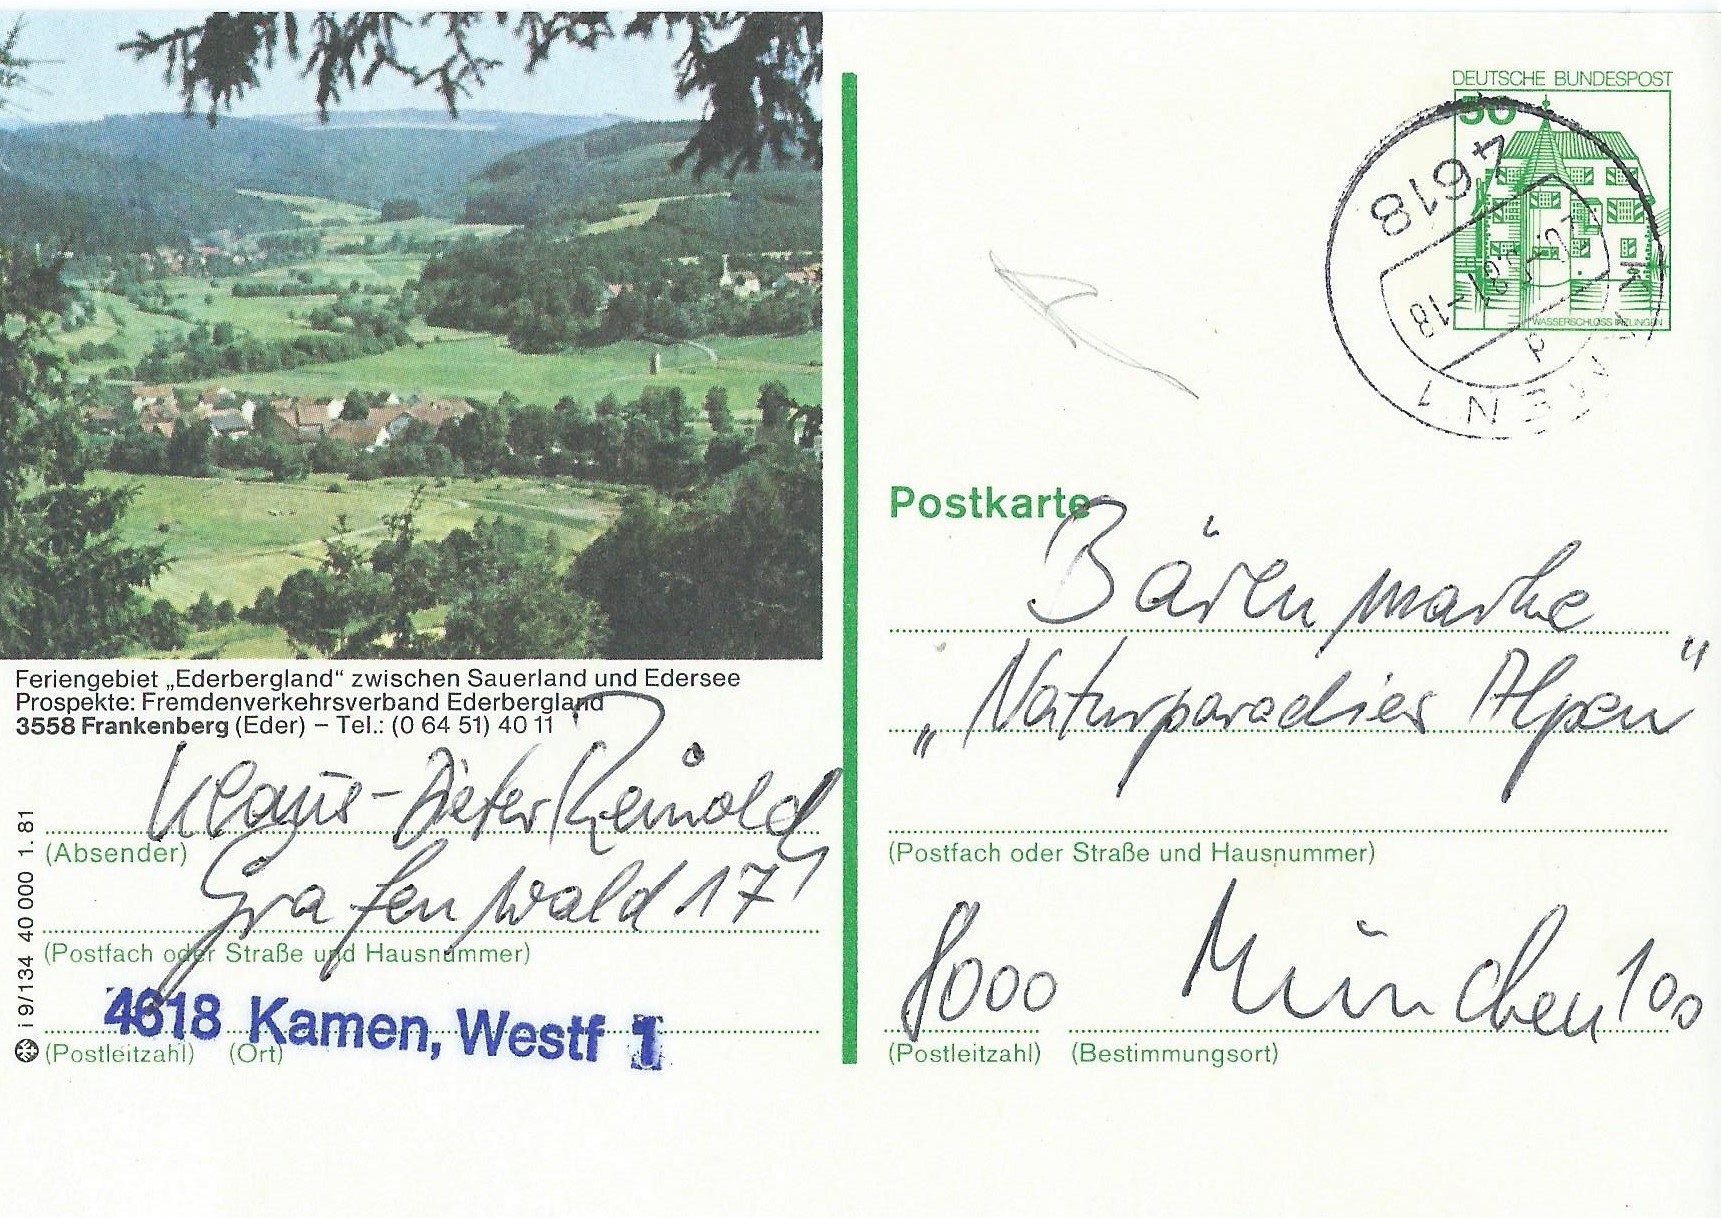 Feriengebiet „Ederbergland“ zwischen Sauerland und Edersee
Prospekte: Fremdenverkehrsverband Ederbergland
3558 Frankenberg (Eder) – Tel.: (0 64 51) 40 11
Klaus-Dieter Reinold
(Absender)
Grafenwald 17
(Postfach oder Straße und Hausnummer)
4618 Kamen, Westf 1
(Postleitzahl) (Ort)
i 9/134 40 000 1.81
DEUTSCHE BUNDESPOST
50
WASSERSCHLOSS INZLINGEN
4618
KAMEN 1
-18
d
Postkarte
Bärenmarke
„Naturparadies Alpen“
(Postfach oder Straße und Hausnummer)
8000 München 100
(Postleitzahl) (Bestimmungsort)